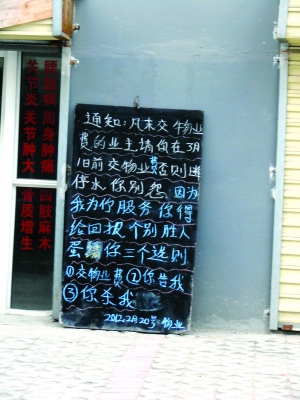 腰腿病 周身肿痛
四肢麻木
关节炎 关节肿大
骨质增生
通知:凡未交物业
费的业主请你在3月
1日前交物业费否则
停水你别怨 因为
我为你服务你得
给回报 个别胜人
蛋 你三个选则
①交物业费②你告我
③你杀我
2012.2.20号:物业